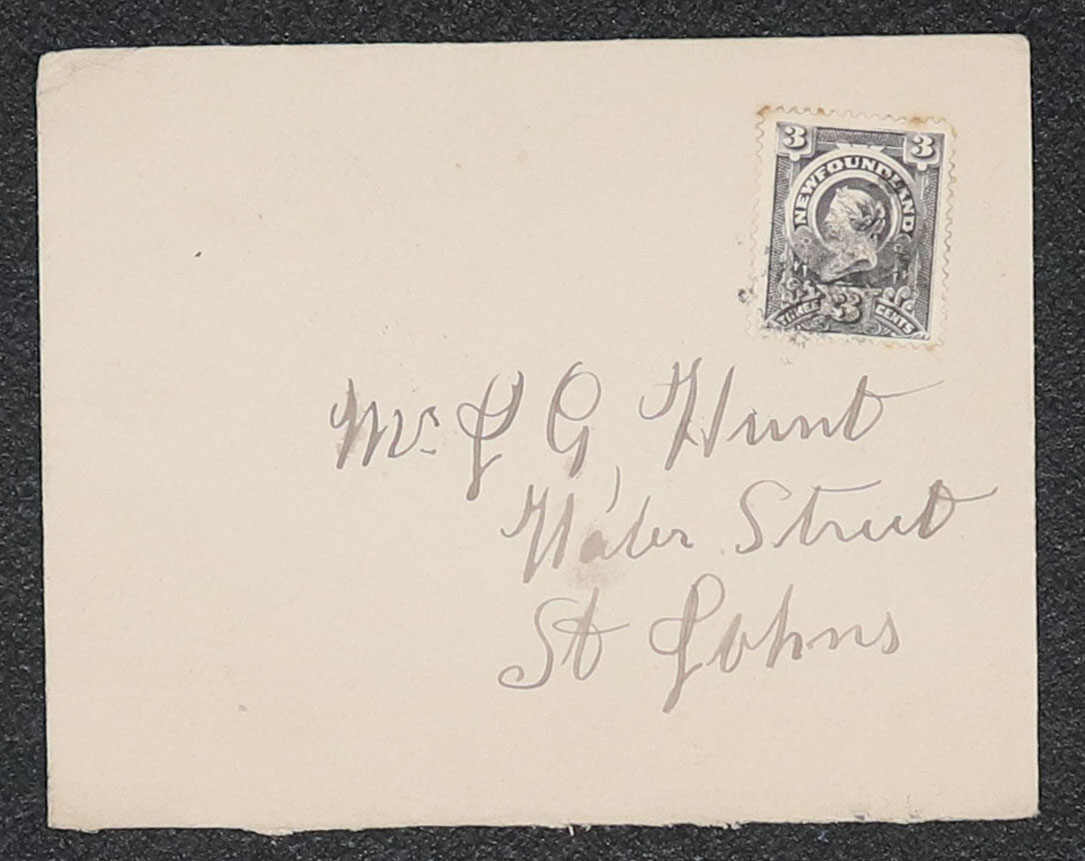 3 3
NEWFOUNDLAND
THREE 3 CENTS
Mr. J G Hunt
Water Street
St Johns